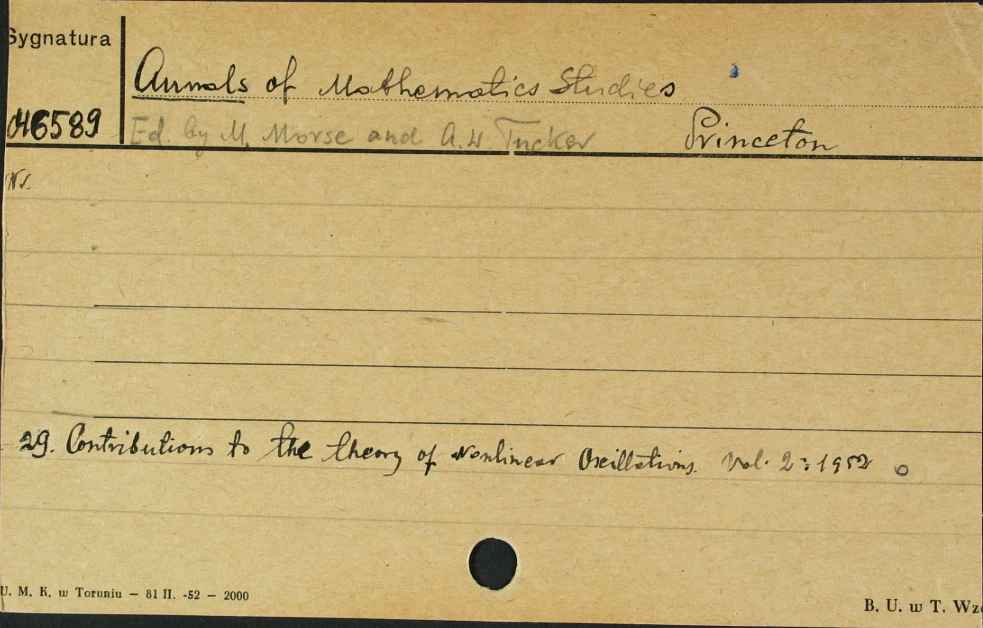 Sygnatura
Annals of Mathematics Studies
046589 Ed. by M. Morse and A.W. Tucker Princeton
Nr.
29. Contributions to the theory of Nonlinear Oscillations. Vol. 2: 1952
U. M. K. w Toruniu — 81 II. -52 — 2000
B. U. w T. Wzó